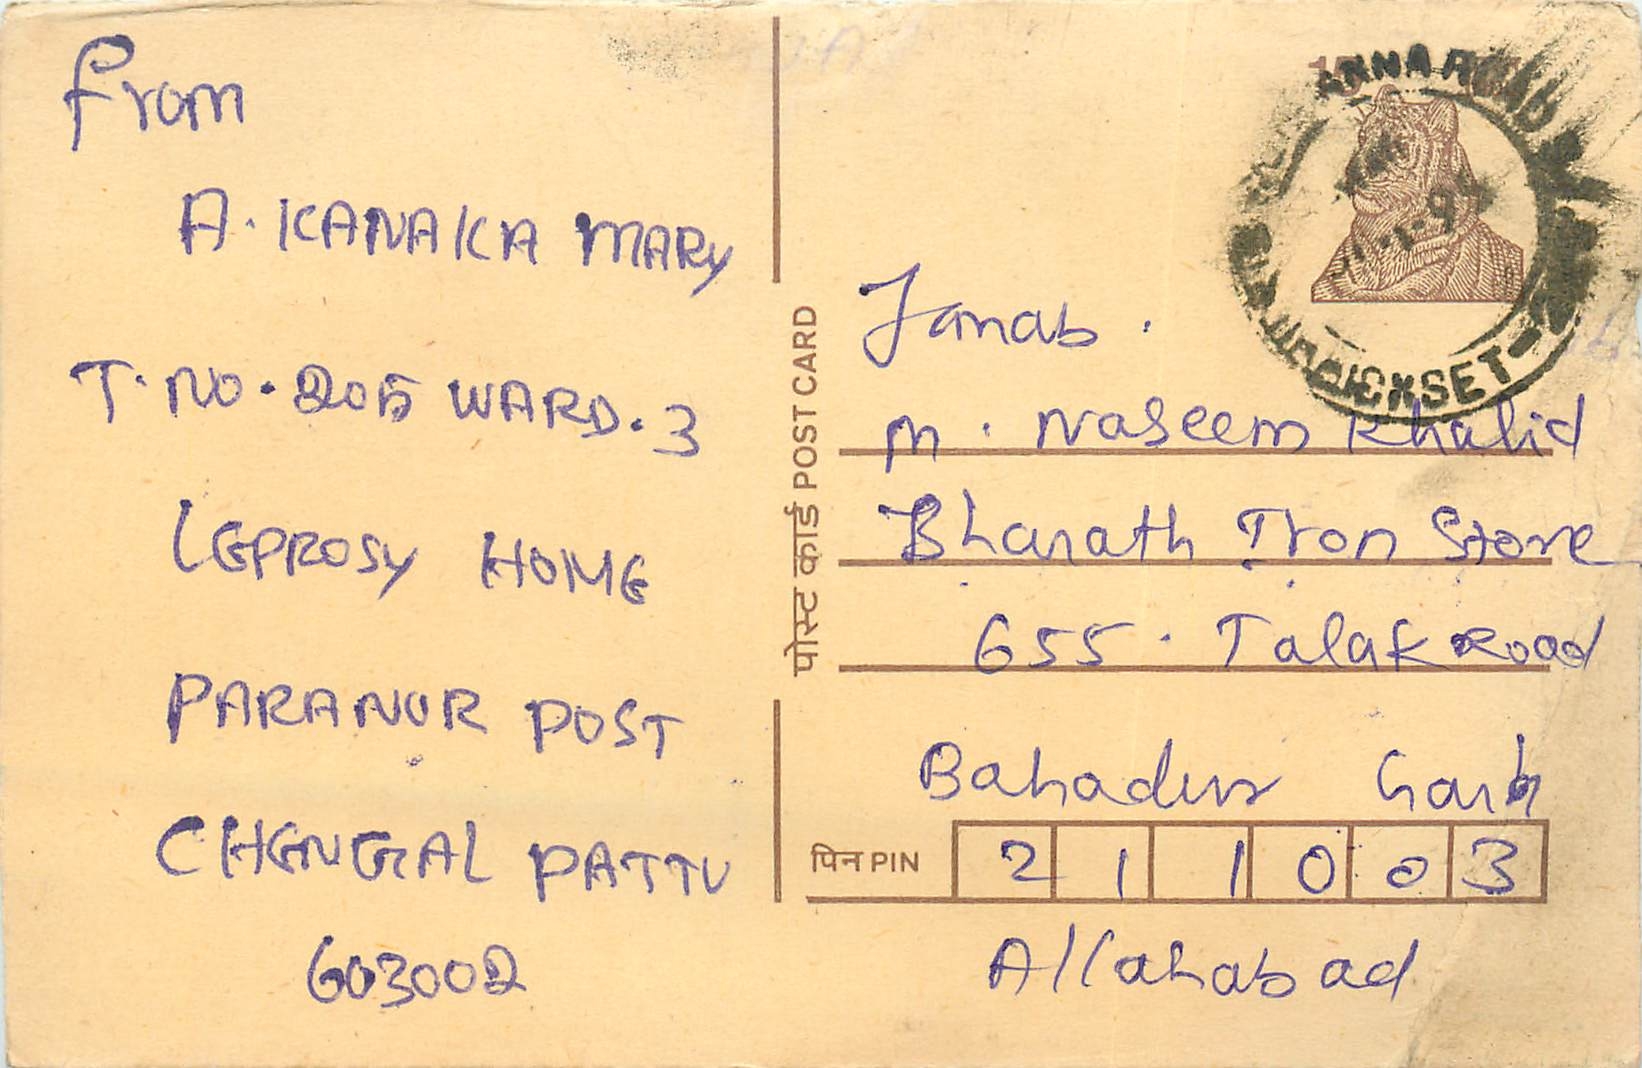 From
A. KANAKA MARY
T. NO. 205 WARD. 3
LEPROSY HOME
PARANUR POST
CHENGAL PATTU
603002
पोस्ट कार्ड POST CARD
Janab.
M. Naseem Khalid
Bharath Iron Store
655. Talak Road
Bahadur Garh
पिन PIN 2 1 1 0 0 3
Allahabad